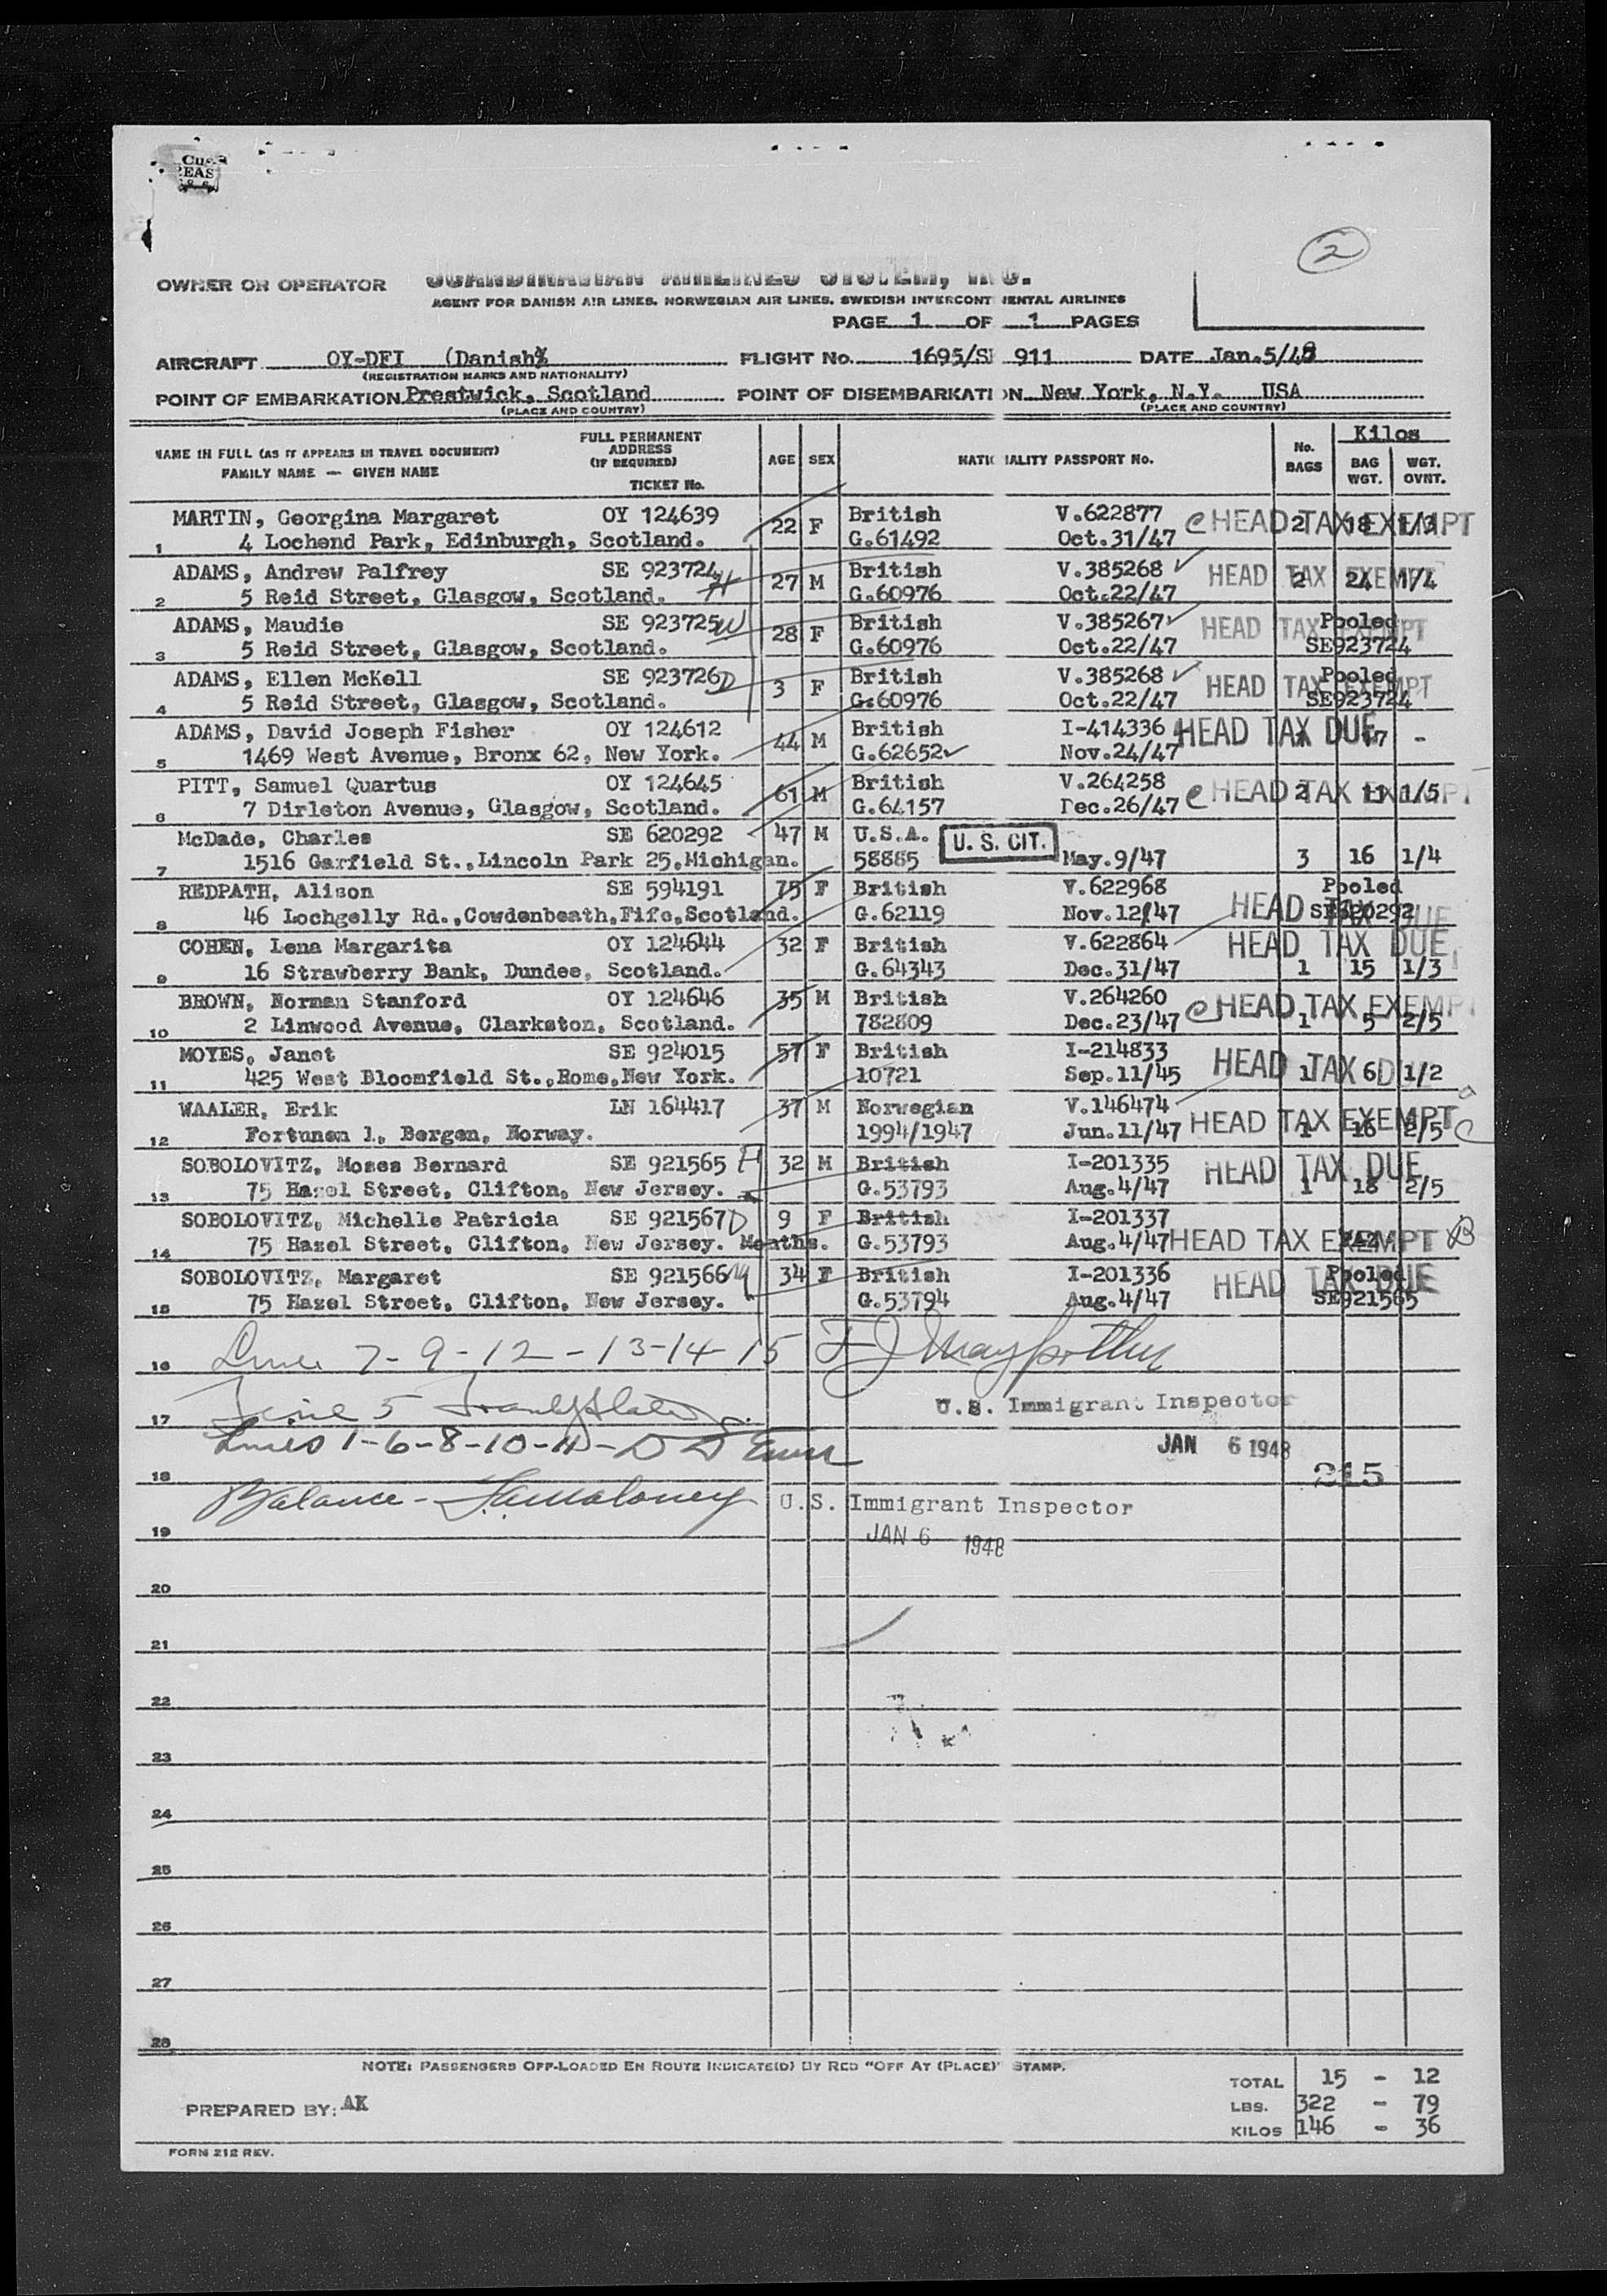 2
OWNER OR OPERATOR SCANDINAVIAN AIRLINES SYSTEM, INC.
AGENT FOR DANISH AIR LINES, NORWEGIAN AIR LINES, SWEDISH INTERCONTINENTAL AIRLINES
PAGE 1 OF 1 PAGES
AIRCRAFT OY-DFI (Danish% FLIGHT No. 1695/S 911 DATE Jan.5/48
(REGISTRATION MARKS AND NATIONALITY)
POINT OF EMBARKATION Prestwick, Scotland POINT OF DISEMBARKATION New York, N.Y. USA
(PLACE AND COUNTRY) (PLACE AND COUNTRY)
NAME IN FULL (AS IT APPEARS IN TRAVEL DOCUMENT)
FAMILY NAME — GIVEN NAME
FULL PERMANENT
ADDRESS
(IF REQUIRED)
TICKET No.
AGE SEX NATIONALITY PASSPORT No. No. BAGS Kilos BAG WGT. WGT. OVNT.
MARTIN, Georgina Margaret OY 124639 22 F British V.622877 e HEAD TAX EXEMPT 2 18 1/3
1 4 Lochend Park, Edinburgh, Scotland. G.61492 Oct.31/47
ADAMS, Andrew Palfrey SE 923724 H 27 M British V.385268 HEAD TAX EXEMPT 2 24 1/4
2 5 Reid Street, Glasgow, Scotland. G.60976 Oct.22/47
ADAMS, Maudie SE 923725 W 28 F British V.385267 HEAD TAX EXEMPT Pooled
3 5 Reid Street, Glasgow, Scotland. G.60976 Oct.22/47 SE923724
ADAMS, Ellen McKell SE 923726 D 3 F British V.385268 HEAD TAX EXEMPT Pooled
4 5 Reid Street, Glasgow, Scotland. G.60976 Oct.22/47 SE923724
ADAMS, David Joseph Fisher OY 124612 44 M British I-414336 HEAD TAX DUE 17 -
5 1469 West Avenue, Bronx 62, New York. G.62652 Nov.24/47
PITT, Samuel Quartus OY 124645 61 M British V.264258 e HEAD TAX EXEMPT 2 11 1/5
6 7 Dirleton Avenue, Glasgow, Scotland. G.64157 Dec.26/47
McDade, Charles SE 620292 47 M U.S.A. U. S. CIT.
7 1516 Garfield St., Lincoln Park 25, Michigan. 58885 May.9/47 3 16 1/4
REDPATH, Alison SE 594191 75 F British V.622968 Pooled
8 46 Lochgelly Rd., Cowdenbeath, Fife, Scotland. G.62119 Nov.12/47 HEAD TAX DUE SE620292
COHEN, Lena Margarita OY 124644 32 F British V.622864 HEAD TAX DUE
9 16 Strawberry Bank, Dundee, Scotland. G.64343 Dec.31/47 1 15 1/3
BROWN, Norman Stanford OY 124646 35 M British V.264260 e HEAD TAX EXEMPT
10 2 Linwood Avenue, Clarkston, Scotland. 782809 Dec.23/47 1 5 2/5
MOYES, Janet SE 924015 57 F British I-214833 HEAD TAX D
11 425 West Bloomfield St., Rome, New York. 10721 Sep.11/45 1 6 1/2
WAALER, Erik LN 164417 37 M Norwegian V.146474 HEAD TAX EXEMPT
12 Fortunen 1, Bergen, Norway. 1994/1947 Jun.11/47 1 16 2/5
SOBOLOVITZ, Moses Bernard SE 921565 H 32 M British I-201335 HEAD TAX DUE
13 75 Hazel Street, Clifton, New Jersey. G.53793 Aug.4/47 1 18 2/5
SOBOLOVITZ, Michelle Patricia SE 921567 D 9 F British I-201337
14 75 Hazel Street, Clifton, New Jersey. Months. G.53793 Aug.4/47 HEAD TAX EXEMPT B
SOBOLOVITZ, Margaret SE 921566 W 34 F British I-201336 HEAD TAX DUE Pooled
15 75 Hazel Street, Clifton, New Jersey. G.53794 Aug.4/47 SE921565
16 Line 7-9-12-13-14-15
U.S. Immigrant Inspector
17 Line 5
Lines 1-6-8-10-11-
JAN 6 1948
18 215
Balance - U.S. Immigrant Inspector
19 JAN 6 1948
20
21
22
23
24
25
26
27
28
NOTE: PASSENGERS OFF-LOADED EN ROUTE INDICATE(D) BY RED "OFF AT (PLACE)" STAMP.
TOTAL 15 - 12
PREPARED BY: AK LBS. 322 - 79
KILOS 146 - 36
FORM 212 REV.